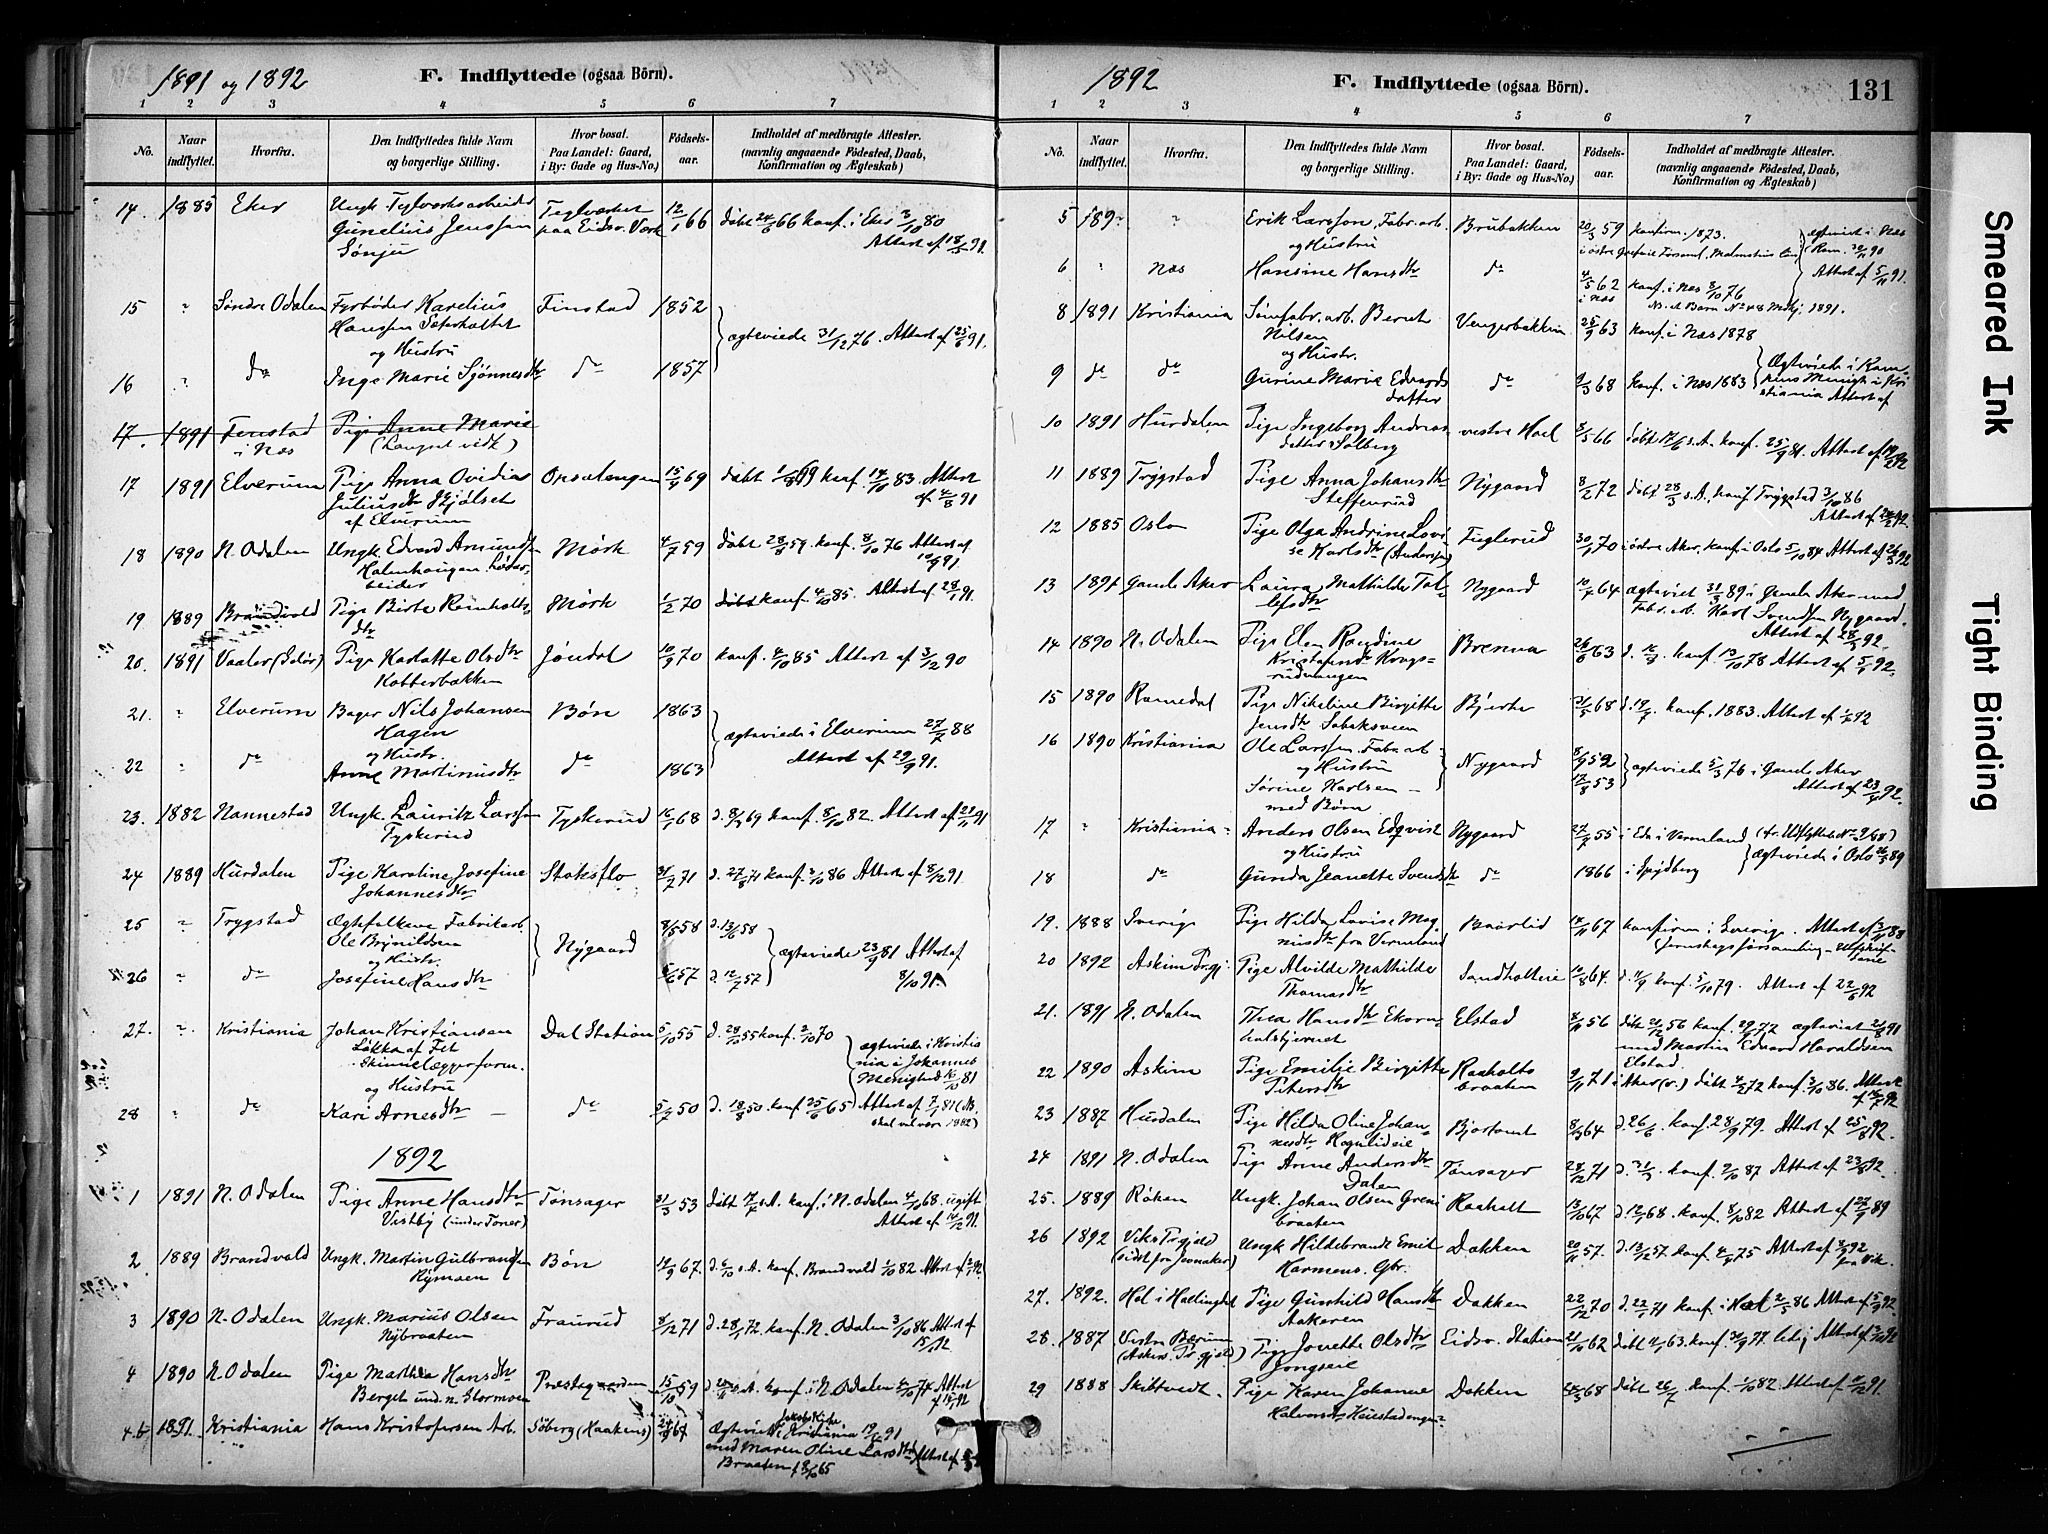 1891 og 1892
F. Indflyttede (ogsaa Börn).
1 2 3 4 5 6 7
No.
Naar indflyttet.
Hvorfra.
Den Indflyttedes fulde Navn
og borgerlige Stilling.
Hvor bosat.
Paa Landet: Gaard,
i By: Gade og Hus-No.)
Födsels-
aar.
Indholdet af medbragte Attester.
(navnlig angaaende Födested, Daab,
Konfirmation og Ægteskab)
14. 1885 Eker Ungk. Teglværksarbeider Teglværket 12/1 66 döbt 24/6 66 konf. i Eker 3/10 80
Gunelius Jenssen paa Eidsv. Værk Attest af 18/5 91.
Sönju
15 " Söndre Odalen Fyrböder Karelius Finstad 1852
Hanssen Seterholtet
og Hustru
ægteviede 31/12 76. Attest af 25/6 91.
16 " do Inge Marie Sjönnesdtr do 1857
17. 1891 Finstad Pige Anne Marie
i Næs (Langset vidt)
17 1891 Elverum Pige Anna Ovidia Opsalengen 15/4 69 döbt 1/8 69 konf. 14/10 83. Attest
Juliusdtr Hjölset af 4/8 91
af Elverum
18 1890 N. Odalen Ungk. Edvard Amundsen Mörk 4/7 59 döbt 28/8 59. konf. 8/10 76 Attest af
Holenhaugen 10/9 91
beider
19 1889 Brandvold Pige Birte Romholts- Mörk 1/2 70 döbt konf. 4/10 85. Attest af 28/9 91.
dtr
20. 1891 Vaaler (Solör) Pige Karlotte Olsdtr Jöndal 10/9 70 konf. 4/10 85 Attest af 3/12 90
Kotterbakken
21. " Elverum Bager Nils Johansen Bön 1863
Hagen
og Hustr.
ægteviede i Elverum 27/7 88
Attest af 29/9 91.
22 " do Anne Martinusdtr do 1863
23. 1882 Nannestad Ungk. Lauritz Larssen Tyskerud 16/1 68 d. 8/3 69 konf. 8/10 82. Attest af 23/11 91
Tyskerud
24 1889 Hurdalen Pige Karoline Josefine Stoksflo 31/7 71 d. 27/8 71 konf. 3/10 86 Attest af 8/12 91.
Johannesdtr
25 " Trygstad Ægtefolkene Fabrikarb. Nygaard 8/5 58 d. 13/6 58
Ole Brynildsen
og Hustr.
ægteviede 23/9 81 Attest af
8/10 91.
26 " do Josefine Hansdtr 5/6 57 d. 12/7 57
27. " Kristiania Johan Kristiansen Dal Station 5/10 55 d. 28/10 55 konf. 2/10 70
Løkka af Fet
Skinnelæggerform.
og Hustru
ægteviede i Kristia
nia i Johannes
Menighed 16/10 81
28 " do Kari Arnesdtr – do 5/7 50 d. 18/8 50. konf 25/6 65 Attest af 7/1 81 (NB.
skal vel være 1882)
1892
1 1891 N. Odalen Pige Anne Hansdtr Tönsager 31/3 53 döbt 17/7 s.A. konf. i N. Odalen 4/10 68. igift
Vistby (under Toner) Attest af 14/12 91.
2 1889 Brandvold Ungk. Martin Gulbrandsen Bön 14/9 67. d. 6/10 s.A. konf. Brandvold 1/10 82 Attest af 2/1 92
Nymoen
3 1890 N. Odalen Ungk. Marius Olsen Fraurud 8/12 71 d. 28/1 72 konf. N. Odalen 3/10 86 Attest af
Nybraaten 15/1 92.
4 1890 N. Odalen Pige Marthea Hansdtr Præstegaarden 15/10 59 konf. i N. Odalen 4/10 74 Attest
Berget und. n. Stormoen
4.b 1891. Kristiania Hans Kristofersen Arb. Söberg (Haakens) 67 Ægteviet i Jakobs Kirke, Kristiania 91
med Maren Oline Larsdtr Attest af
Braaten f 9/10 65

1892
F. Indflyttede (ogsaa Börn).
131
1 2 3 4 5 6 7
No.
Naar indflyttet.
Hvorfra.
Den Indflyttedes fulde Navn
og borgerlige Stilling.
Hvor bosat.
Paa Landet: Gaard,
i By: Gade og Hus-No.)
Födsels-
aar.
Indholdet af medbragte Attester.
(navnlig angaaende Födested, Daab,
Konfirmation og Ægteskab)
5 189" " Erik Larsson, Fabr. arb. Brubakken 20/3 59 konfirm. 1873.
og Hustru
ægteviet i Næs
Attest af 5/11 91.
6 " Næs Hansine Hansdtr do 4/5 62 konf. i Næs 3/10 76
i Næs
8 1891 Kristiania Sömfabr. arb. Bernt Vengerbakken 25/9 63 konf. i Næs 1878
Nilsen
og Hustr.
9 do do Gurine Marie Edvards do 9/3 68 konf. i Næs 1883
datter
Ægteviede i Kam-
pens Menigh. i Kri
stiania Attest af
10 1891 Hurdalen Pige Ingeborg Andreas- vestre Hoel 3/5 66 döbt 17/6 s.A. konf. 25/9 81. Attest af 14/2 92
datter Solberg
11 1889 Trygstad Pige Anna Johansdtr Nygaard 8/2 72 döbt 28/3 s.A. konf Trygstad 3/10 86
Steffenrud Attest af 24/2 92.
12 1885 Oslo Pige Olga Andrine Lovi- Fuglerud 30/1 70 i östre Aker, konf. i Oslo 5/10 84 Attest af 24/3 92
se Karlsdtr (Andersen)
13 1891 Gamle Aker Laura Mathilde Tol- Nygaard 10/4 64 ægteviet 31/3 89 i Gamle Aker med
lefsdtr Fabr. arb. Karl Svendsen Nygaard.
Attest af 28/3 92.
14 1890 N. Odalen Pige Elen Randine Brenna 26/6 63 d. 16/8. konf. 13/10 78 Attest af 5/4 92.
Kristofersdtr Kongs-
rudvangen
15 1890 Romedal Pige Nikeline Birgitte Bjerke 31/5 68 d. 19/7. konf. 1883. Attest af 1/5 92
Jensdtr Sabaksveen
16 1890 Kristiania Ole Larssen Fabr. arb Nygaard 8/9 52
og Hustru
Sörine Karlsen – 17/8 53
med Børn
ægteviede 5/3 76 i Gamle Aker
Attest af 23/4 92.
17 " Kristiania Anders Olsen Edqvist Nygaard 27/7 55 i Eda i Vermland (fr. Udflyttede No 9/88)
og Hustru ægteviede i Oslo 89
18 do Gunda Jeanette Svendsdtr do 1866 i Spydberg
19. 1888 Sverige Pige Hilda Lovise Mag- Baarlid 14/11 67 konfirm i Sverige. Attest af 88
nusdtr fra Vermland
20 1892 Askim Prgj. Pige Alvilde Mathilde Sandholteie 10/8 64. d. 11/9 konf. 5/10 79. Attest af 22/6 92
Thomasdtr
21. 1891 N. Odalen Thea Hansdtr Ekorn- Elstad 8/11 56 döbt 21/12 56 konf. 29/9 72 ægteviet 21/8 91
holstjernet med Martin Edvard Haraldsen
Elstad.
22 1890 Askim Pige Emilie Birgitte Raaholts 9/11 71 i Aker (v.) döbt 4/2 72 konf. 3/10 86. Attest
Petersdtr braaten af 16/7 92
23 1887 Hurdalen Pige Hilda Oline Johan- Bjortomt 8/3 64 d. 26/6. konf. 28/9 79. Attest af 25/8 92.
nesdtr Rognlideie
24 1891 N. Odalen Pige Anne Andersdtr Tönsager 28/12 71 d. 31/3. konf. 2/10 87 Attest af 23/8 92.
Dalen
25. 1889 Röken Ungk. Johan Olsen Greni Raaholt 13/10 67 d. 12/1 68. konf. 8/10 82 Attest af 27/9 89
braaten
26 1892 Viks Prgjeld Ungk Hildebrandt Emil Dokken 20/11 57. d. 13/12 57 konf. 4/4 75 Attest af 4/9 92
(sidst fra Jevnaker) Harmens. Gbr. fra Vik.
27. 1892. Hol i Hallingdal Pige Gunhild Hansdtr Dokken 22/12 70 d. 22/1 71 konf. i Hol 2/5 86 Attest af 5/9 92.
Aakeren
28. 1887 Vestre Bærum Pige Jonette Olsdtr Eidsv. Station 21/10 62 döbt 4/1 63. konf. 30/9 77. ledig Attest af 92
(Askers Prgjeld) Jongseie
29 1888 Skiptvedt. Pige Karen Johanne Dokken 24/3 68 Döbt 26/7 konf. 1/10 82. Attest af 4/12 91.
Halvorsdtr Heiestadengen

Smeared Ink
Tight Binding